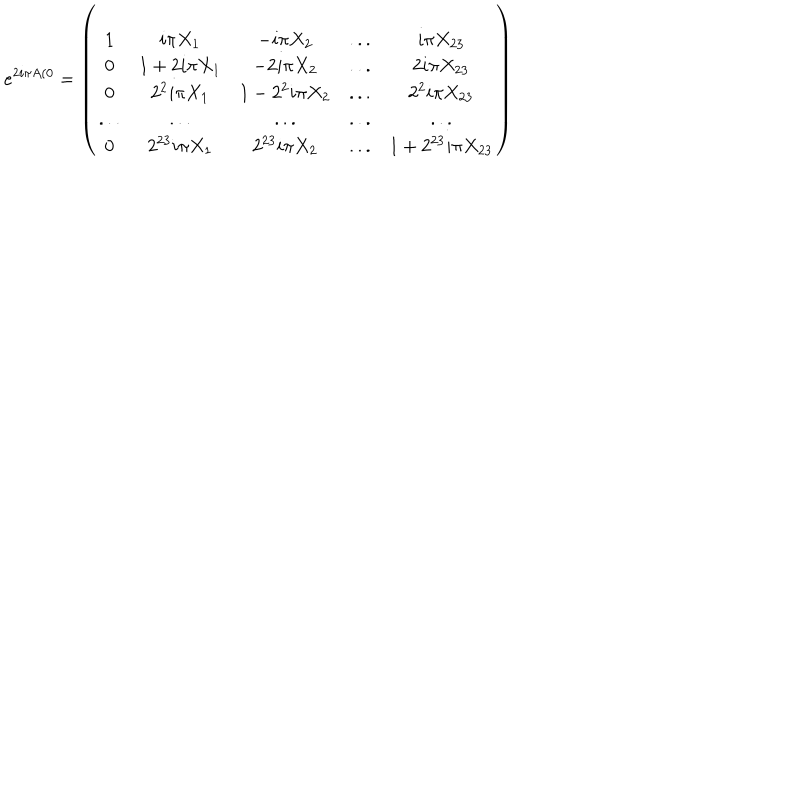 e^{2iπA(0} = \begin{pmatrix}
1 & iπX_1 & -iπX_2 & ... & iπX_{23} \\
0 & 1 + 2iπX_1 & -2iπX_2 & ... & 2iπX_{23} \\
0 & 2^2iπX_1 & 1 - 2^2iπX_2 & ... & 2^2iπX_{23} \\
... & ... & ... & ... & ... \\
0 & 2^{23}iπX_1 & 2^{23}iπX_2 & ... & 1 + 2^{23}iπX_{23}
\end{pmatrix}